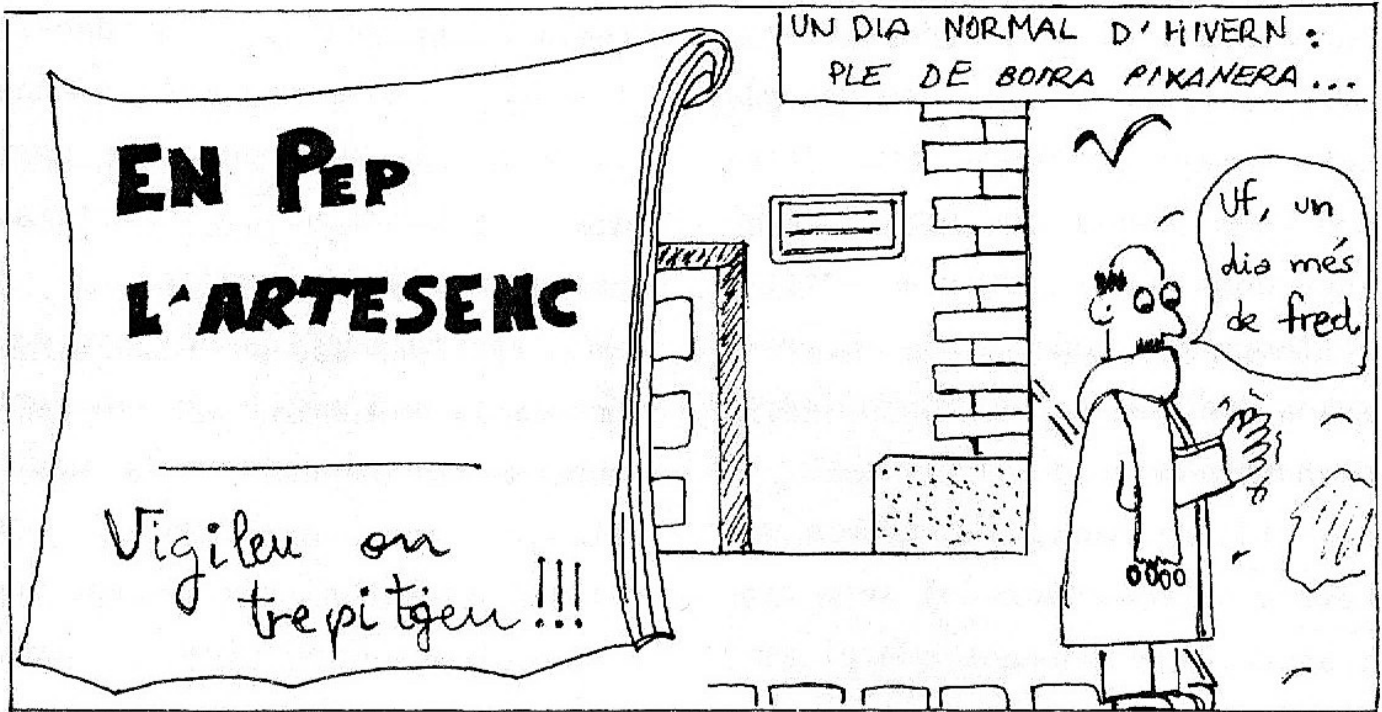 EN PEP
L'ARTESENC
Vigileu on
trepitgeu!!!
UN DIA NORMAL D'HIVERN:
PLE DE BOIRA PIXANERA...
Uf, un
dia més
de fred.